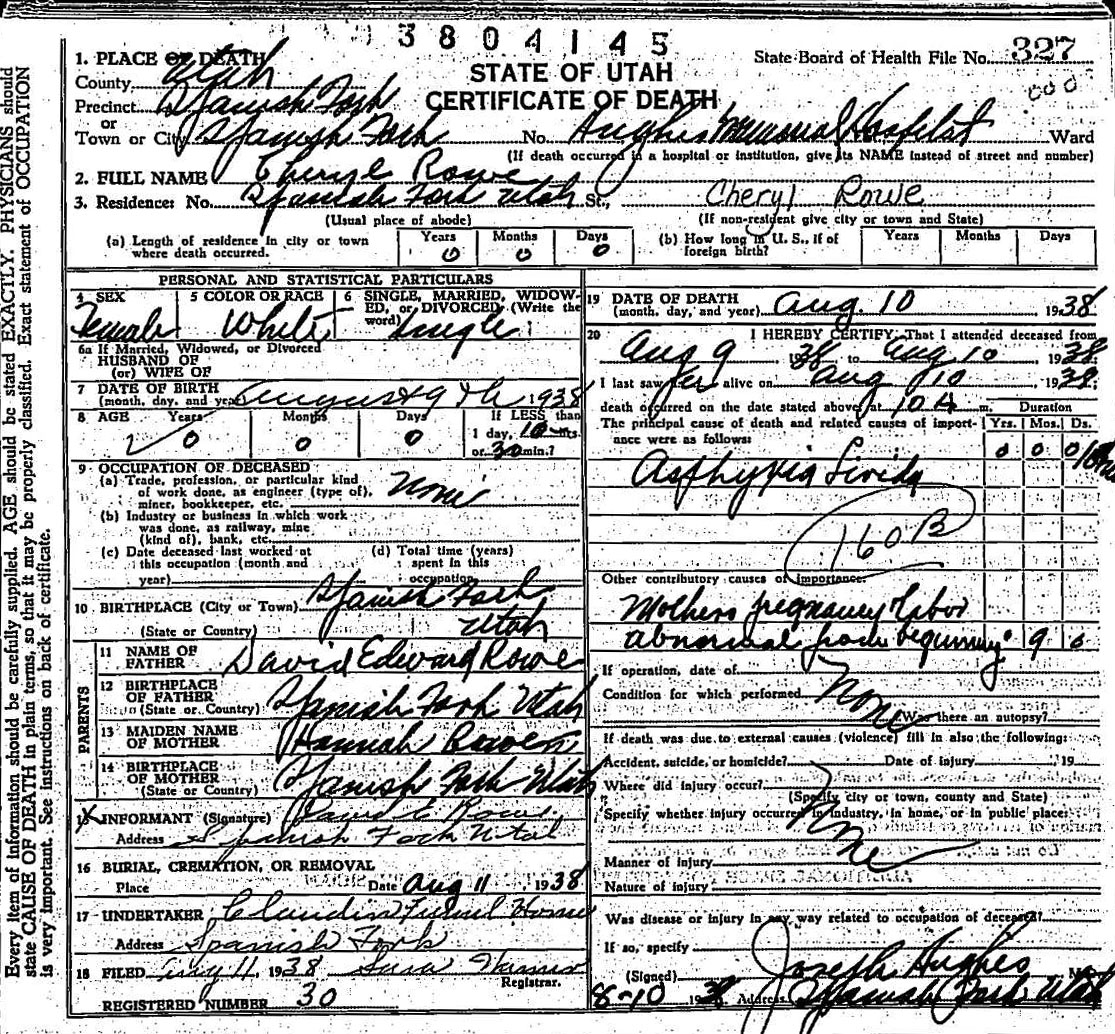 3804145
1. PLACE OF DEATH
STATE OF UTAH
CERTIFICATE OF DEATH
State Board of Health File No. 327
County Utah
Precinct Spanish Fork
or
Town or City Spanish Fork No. Hughes Memorial Hospital Ward
(If death occurred in a hospital or institution, give its NAME instead of street and number)
2. FULL NAME Cheryl Rowe
3. Residence: No. Spanish Fork Utah St., Cheryl Rowe
(Usual place of abode) (If non-resident give city or town and State)
(a) Length of residence in city or town where death occurred. Years 0 Months 0 Days 0
(b) How long in U. S., if of foreign birth? Years Months Days
PERSONAL AND STATISTICAL PARTICULARS
4 SEX 5 COLOR OR RACE 6 SINGLE, MARRIED, WIDOWED, or DIVORCED (Write the word)
Female White Single
6a If Married, Widowed, or Divorced
HUSBAND OF
(or) WIFE OF
7 DATE OF BIRTH
(month, day, and year) August 9th 1938
8 AGE Years Months Days If LESS than
0 0 0 1 day, 10 hrs.
or 30 min.?
9 OCCUPATION OF DECEASED
(a) Trade, profession, or particular kind
of work done, as engineer (type of),
miner, bookkeeper, etc. None
(b) Industry or business in which work
was done, as railway, mine
(kind of), bank, etc.
(c) Date deceased last worked at
this occupation (month and
year)
(d) Total time (years)
spent in this
occupation
10 BIRTHPLACE (City or Town) Spanish Fork
(State or Country) Utah
PARENTS
11 NAME OF
FATHER David Edward Rowe
12 BIRTHPLACE
OF FATHER
(State or Country) Spanish Fork Utah
13 MAIDEN NAME
OF MOTHER Hannah Bowen
14 BIRTHPLACE
OF MOTHER
(State or Country) Spanish Fork Utah
15 INFORMANT (Signature) David E Rowe
Address Spanish Fork Utah
16 BURIAL, CREMATION, OR REMOVAL
Place Date Aug 11 1938
17 UNDERTAKER Claudin Funeral Home
Address Spanish Fork
18 FILED Aug 11, 1938
Registrar.
REGISTERED NUMBER 30
19 DATE OF DEATH
(month, day, and year) Aug. 10 1938
20 I HEREBY CERTIFY, That I attended deceased from
Aug 9 1938 to Aug 10 1938
I last saw her alive on Aug 10, 1938
death occurred on the date stated above, at 10 A m. Duration
The principal cause of death and related causes of importance were as follows: Yrs. Mos. Ds.
0 0 0
Asphyxia Livida
160B
Other contributory causes of importance:
Mothers pregnancy & labor
abnormal from beginning 9 0
If operation, date of
Condition for which performed None
Was there an autopsy?
If death was due to external causes (violence) fill in also the following:
Accident, suicide, or homicide? Date of injury , 19
Where did injury occur?
(Specify city or town, county and State)
Specify whether injury occurred in industry, in home, or in public place:
None
Manner of injury
Nature of injury
Was disease or injury in any way related to occupation of deceased?
If so, specify
(Signed) Joseph Hughes M.
8-10 1938 Address Spanish Fork Utah
Every item of information should be carefully supplied. AGE should be stated EXACTLY. PHYSICIANS should
state CAUSE OF DEATH in plain terms, so that it may be properly classified. Exact statement of OCCUPATION
is very important. See instructions on back of certificate.